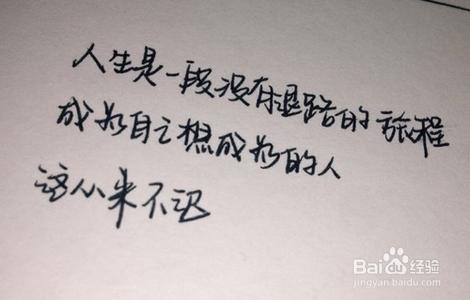 人生是一段没有退路的旅程
成为自己想成为的人
这从来不迟
Baidu经验
jingyan.baidu.com